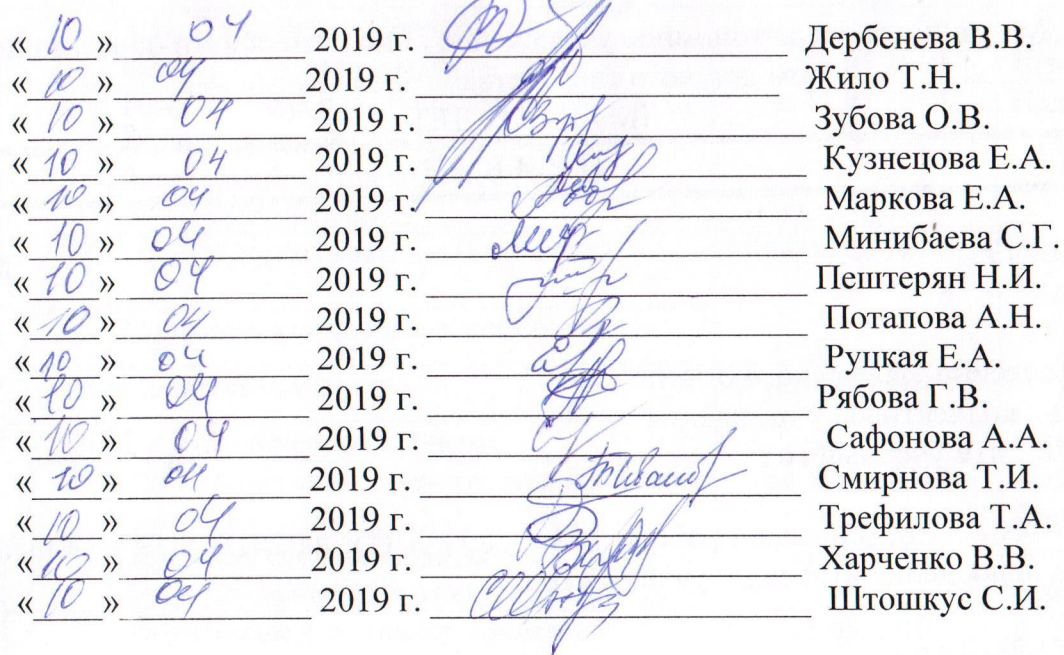 « 10 » 04 2019 г. Дербенева В.В.
« 10 » 04 2019 г. Жило Т.Н.
« 10 » 04 2019 г. Зубова О.В.
« 10 » 04 2019 г. Кузнецова Е.А.
« 10 » 04 2019 г. Маркова Е.А.
« 10 » 04 2019 г. Минибаева С.Г.
« 10 » 04 2019 г. Пештерян Н.И.
« 10 » 04 2019 г. Потапова А.Н.
« 10 » 04 2019 г. Руцкая Е.А.
« 10 » 04 2019 г. Рябова Г.В.
« 10 » 04 2019 г. Сафонова А.А.
« 10 » 04 2019 г. Смирнова Т.И.
« 10 » 04 2019 г. Трефилова Т.А.
« 10 » 04 2019 г. Харченко В.В.
« 10 » 04 2019 г. Штошкус С.И.